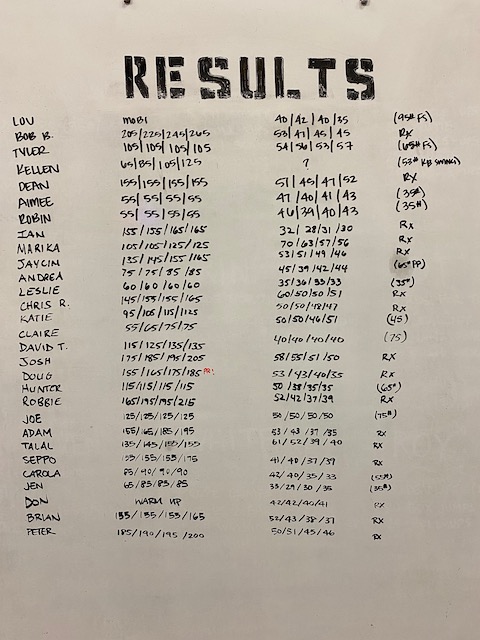 RESULTS
LOU MOBI 40/42/40/35 (95# FS)
BOB B. 205/225/245/265 53/41/45/45 RX
TYLER 105/105/105/105 54/56/53/57 (65# FS)
KELLEN 65/85/105/125 ? (53# KB
DEAN 155/155/155/155 51/45/47/52 RX
AIMEE 55/55/55/65 47/40/41/43 (35#)
ROBIN 55/55/55/65 46/39/40/43 (35#)
IAN 155/155/165/165 32/28/31/30 RX
MARIKA 105/105/125/125 70/63/57/56 RX
135/145/155/165 53/51/49/46 RX
ANDREA 75/75/85/85 45/39/42/44 (65# PP)
LESLIE 60/60/60/60 35/36/33/33 (35#)
CHRIS R. 145/155/155/165 60/50/50/51 RX
KATIE 95/105/115/125 50/50/48/47 RX
CLAIRE 55/65/75/75 50/50/46/51 (45)
DAVID T. 115/125/135/135 40/40/40/40 (75)
JOSH 175/185/195/205 58/55/51/50 RX
DOUG 155/165/175/185 PR! 53/43/40/35 RX
HUNTER 115/115/115/115 50/38/35/35 (65#)
ROBBIE 165/195/195/215 52/42/37/39 RX
JOE 125/125/125/125 50/50/50/50 (75#)
ADAM 155/165/185/195 53/43/37/35 RX
TALAL 135/145/155/155 61/52/39/40 RX
SEPPO 155/155/155/175 41/40/37/39 RX
CAROLA 85/90/90/90 42/40/35/33 (55#)
JEN 65/85/85/85 33/29/30/35 (35#)
DON WARM UP 42/42/40/41 RX
BRIAN 135/155/155/165 52/43/38/37 RX
PETER 185/190/195/200 50/51/45/46 RX